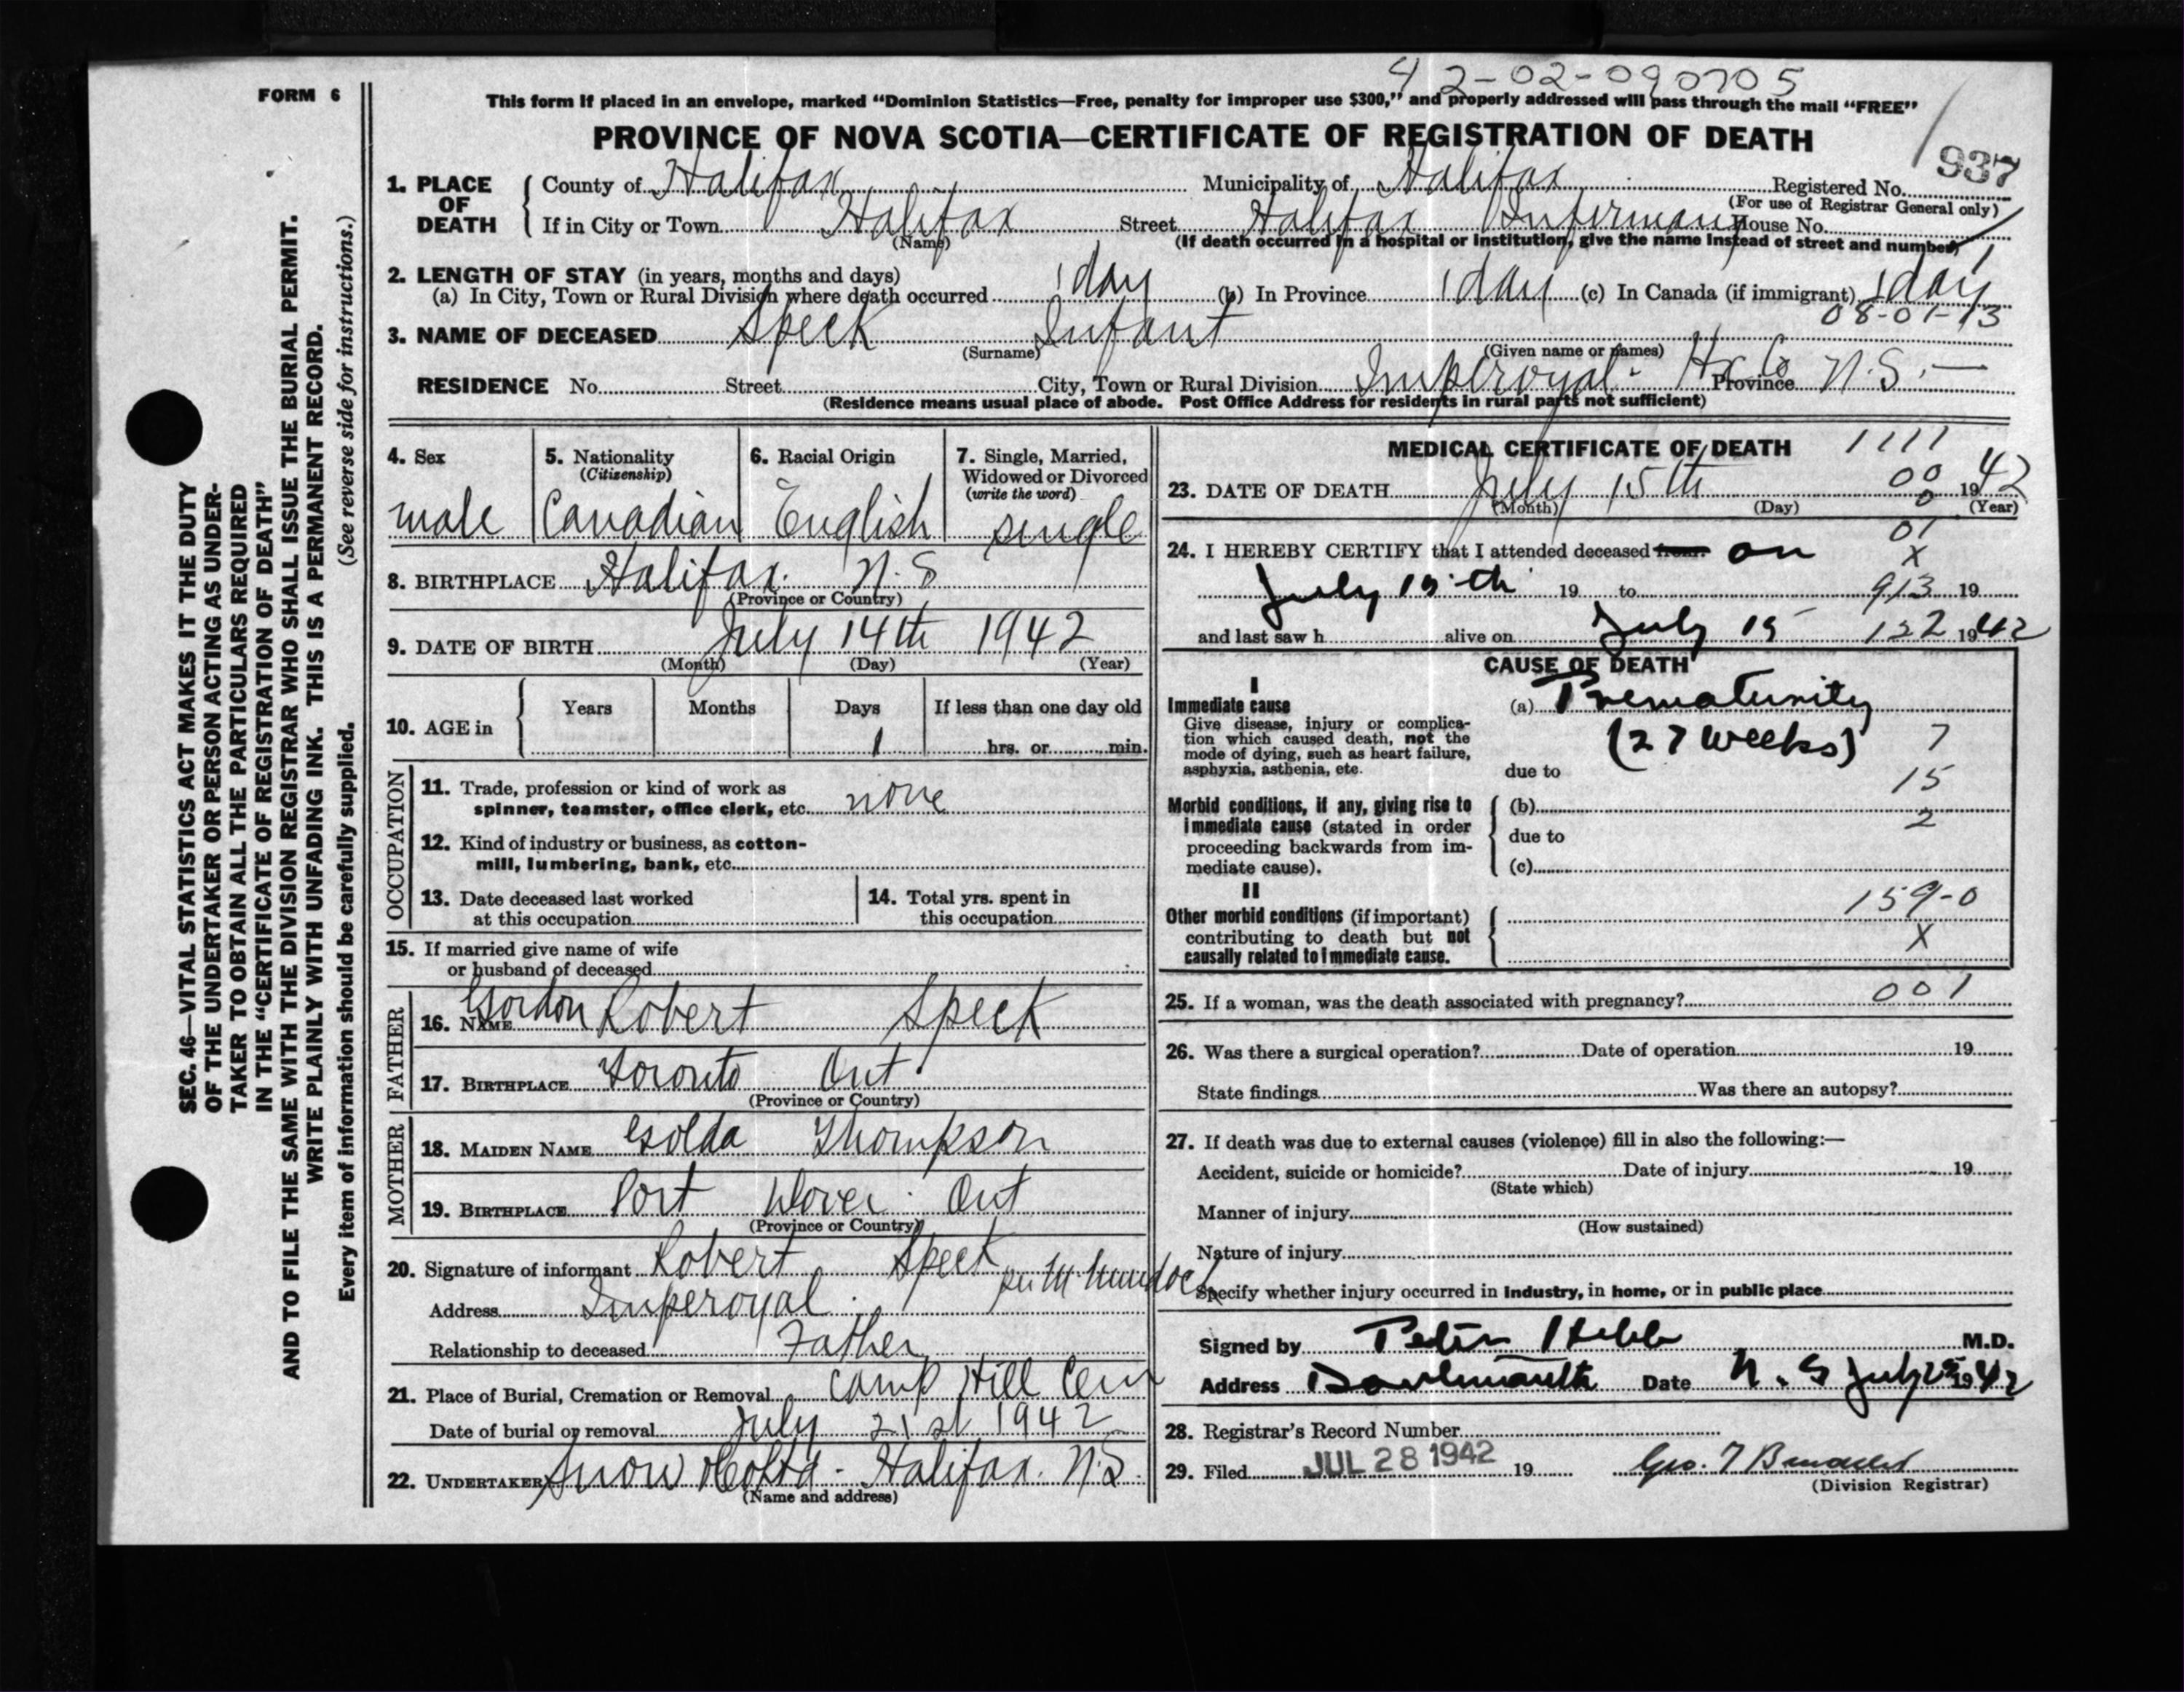 42-02-090705
FORM 6
This form if placed in an envelope, marked “Dominion Statistics—Free, penalty for improper use $300,” and properly addressed will pass through the mail “FREE”
PROVINCE OF NOVA SCOTIA—CERTIFICATE OF REGISTRATION OF DEATH
1. PLACE OF DEATH
County of Halifax Municipality of Halifax Registered No. 937
(For use of Registrar General only)
If in City or Town Halifax Street Halifax Infirmary House No.
(Name) (If death occurred in a hospital or institution, give the name instead of street and number)
2. LENGTH OF STAY (in years, months and days)
(a) In City, Town or Rural Division where death occurred 1 day (b) In Province 1 day (c) In Canada (if immigrant) 1 day
08-01-13
3. NAME OF DECEASED Speck Infant
(Surname) (Given name or names)
RESIDENCE No. Street City, Town or Rural Division Imperoyal - Hx Co Province N.S.
(Residence means usual place of abode. Post Office Address for residents in rural parts not sufficient)
4. Sex
male
5. Nationality
(Citizenship)
Canadian
6. Racial Origin
English
7. Single, Married,
Widowed or Divorced
(write the word)
single
8. BIRTHPLACE Halifax. N.S
(Province or Country)
9. DATE OF BIRTH July 14th 1942
(Month) (Day) (Year)
10. AGE in Years Months Days If less than one day old
1 hrs. or min.
OCCUPATION
11. Trade, profession or kind of work as
spinner, teamster, office clerk, etc. none
12. Kind of industry or business, as cotton-
mill, lumbering, bank, etc.
13. Date deceased last worked
at this occupation
14. Total yrs. spent in
this occupation
15. If married give name of wife
or husband of deceased
FATHER
16. NAME Gordon Robert Speck
17. BIRTHPLACE Toronto Ont.
(Province or Country)
MOTHER
18. MAIDEN NAME Golda Thompson
19. BIRTHPLACE Port Dover Ont
(Province or Country)
20. Signature of informant Robert Speck
Address Imperoyal
Relationship to deceased Father
21. Place of Burial, Cremation or Removal Camp Hill Cem
Date of burial or removal July 21st 1942
22. UNDERTAKER Snow & Co Ltd - Halifax. N.S.
(Name and address)
MEDICAL CERTIFICATE OF DEATH
1111
00
0
23. DATE OF DEATH July 15th 1942
(Month) (Day) (Year)
01
24. I HEREBY CERTIFY that I attended deceased from on
X
July 15th 19 to 913 19
and last saw h alive on July 15 122 1942
CAUSE OF DEATH
I
Immediate cause
Give disease, injury or complica-
tion which caused death, not the
mode of dying, such as heart failure,
asphyxia, asthenia, etc.
(a) Prematurity
(27 weeks) 7
due to
15
Morbid conditions, if any, giving rise to
immediate cause (stated in order
proceeding backwards from im-
mediate cause).
(b)
2
due to
(c)
II
Other morbid conditions (if important)
contributing to death but not
causally related to immediate cause.
159-0
X
25. If a woman, was the death associated with pregnancy? 001
26. Was there a surgical operation? Date of operation 19
State findings Was there an autopsy?
27. If death was due to external causes (violence) fill in also the following:—
Accident, suicide or homicide? Date of injury 19
(State which)
Manner of injury
(How sustained)
Nature of injury
Specify whether injury occurred in Industry, in home, or in public place
Signed by Peter Hebb M.D.
Address Dartmouth Date N.S July 1942
28. Registrar's Record Number
29. Filed JUL 28 1942 19 Geo.
(Division Registrar)
SEC. 46—VITAL STATISTICS ACT MAKES IT THE DUTY
OF THE UNDERTAKER OR PERSON ACTING AS UNDER-
TAKER TO OBTAIN ALL THE PARTICULARS REQUIRED
IN THE “CERTIFICATE OF REGISTRATION OF DEATH”
AND TO FILE THE SAME WITH THE DIVISION REGISTRAR WHO SHALL ISSUE THE BURIAL PERMIT.
WRITE PLAINLY WITH UNFADING INK. THIS IS A PERMANENT RECORD.
Every item of information should be carefully supplied. (See reverse side for instructions.)